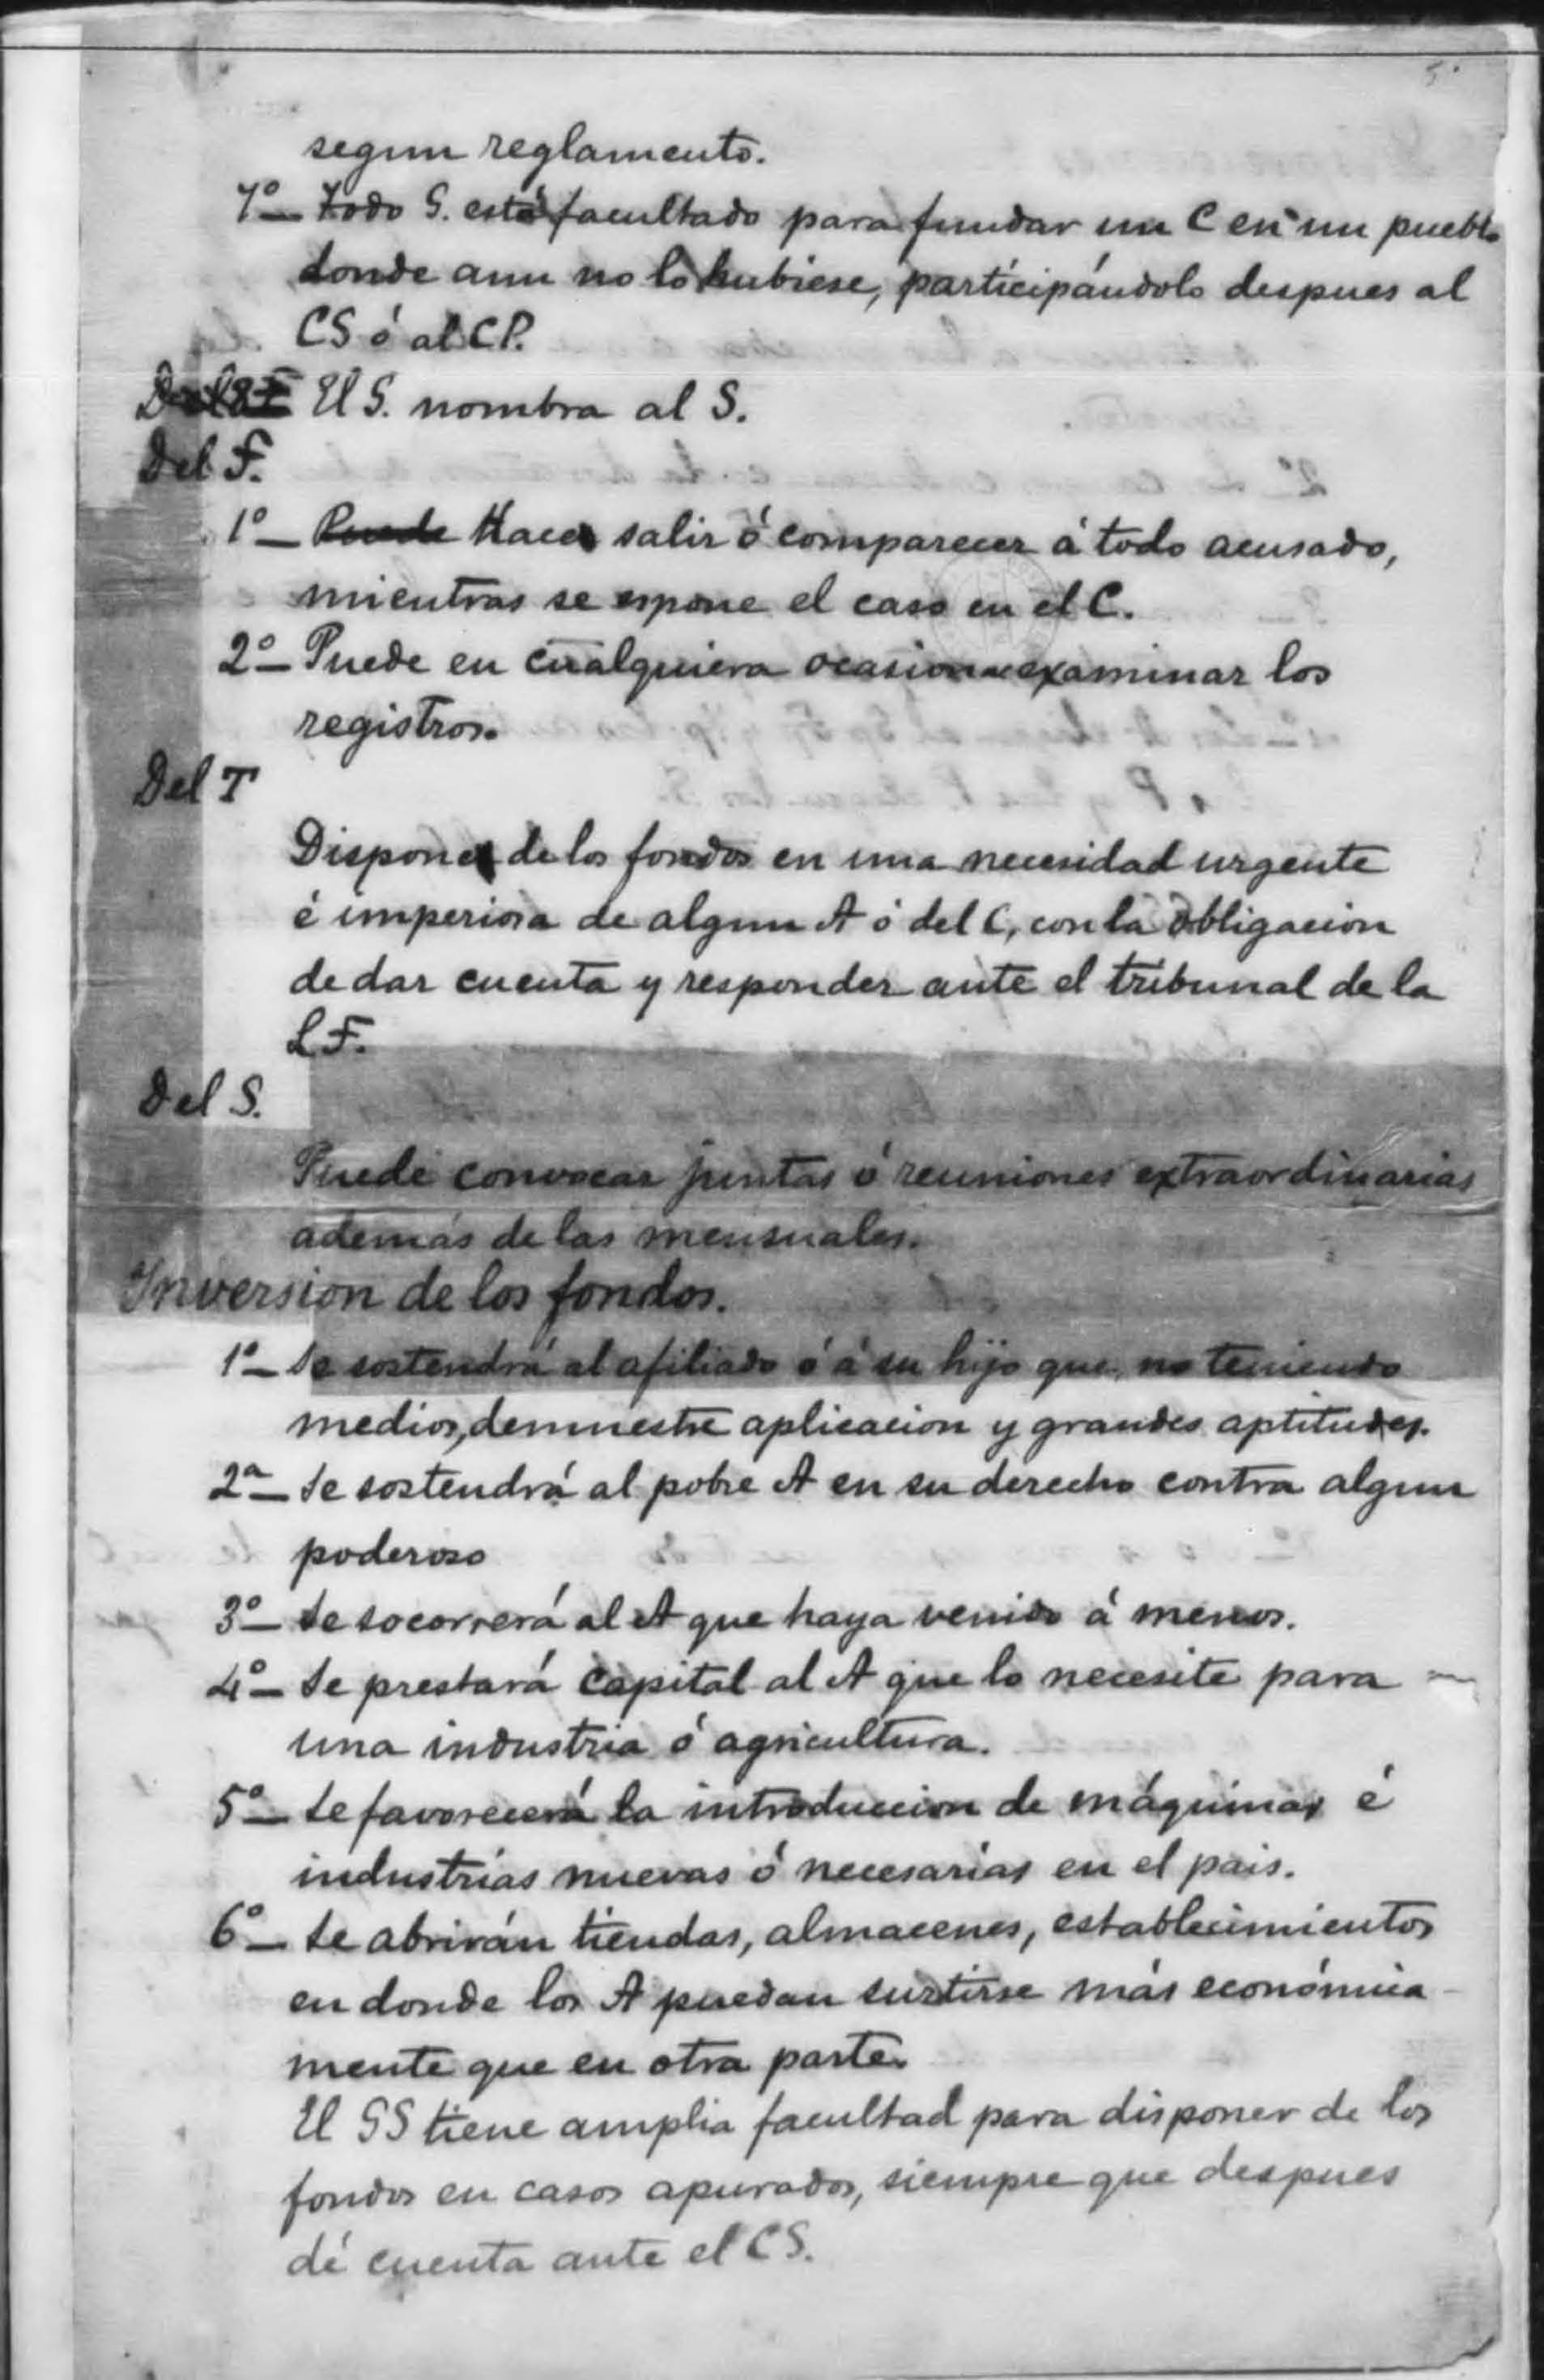 5
segun reglamento.
7º— Todo G. está facultado para fundar un C en un pueblo
donde aun no lo hubiese, participándolo despues al
CS ó al CP.
8º El G. nombra al S.
Del F.
1º— Puede Hacer salir ó comparecer á todo acusado,
mientras se espone el caso en el C.
2º— Puede en cualquiera ocasion examinar los
registros.
Del T
Dispone de los fondos en una necesidad urgente
é imperiosa de algun A ó del C, con la obligacion
de dar cuenta y responder ante el tribunal de la
LF.
Del S.
Puede convocar juntas ó reuniones extraordinarias
además de las mensuales.
Inversion de los fondos.
1º— Se sostendrá al afiliado ó á su hijo que, no teniendo
medios, demuestre aplicacion y grandes aptitudes.
2ª— Se sostendrá al pobre A en su derecho contra algun
poderoso
3º— Se socorrerá al A que haya venido á menos.
4º— Se prestará capital al A que lo necesite para
una industria ó agricultura.
5º— Se favorecerá la introduccion de máquinas é
industrias nuevas ó necesarias en el pais.
6º— Se abrirán tiendas, almacenes, establecimientos
en donde los A puedan surtirse más económica-
mente que en otra parte.
El GS tiene amplia facultad para disponer de los
fondos en casos apurados, siempre que despues
dé cuenta ante el CS.